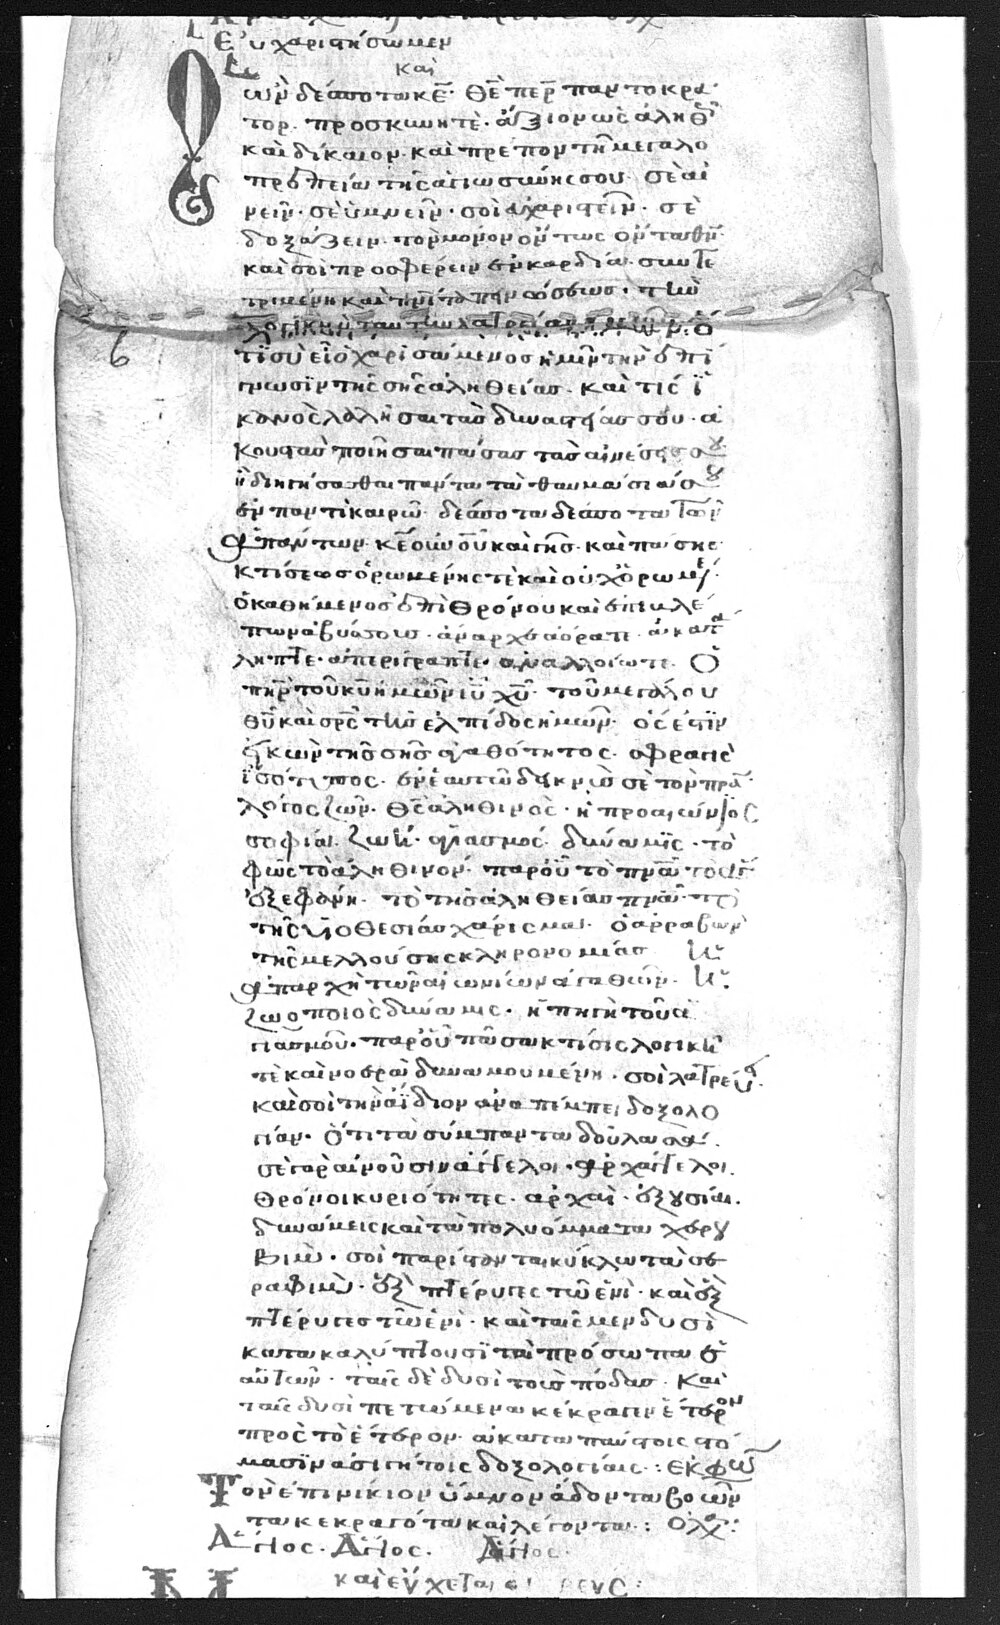 Εὐχαριστήσωμεν
καὶ
ὢν δέσποτα κε̅. θε̅ περ̅ παντοκρά
τορ. προσκυνητὲ. ἄξιον ὡς ἀληθ
καὶ δίκαιον. καὶ πρέπον τῆ μεγαλο
πρεπεία τῆς ἁγιωσύνης σου. σὲ αἰ
νεῖν. σὲ ὑμνεῖν. σοὶ εὐχαριστεῖν. σὲ
δοξάζειν. τὸν μόνον ὄντως ὄντα θν̅
καὶ σοὶ προσφέρειν ἐν καρδία συντε
τριμένη καὶ πνι̅ ταπεινώσεως. τὴν
λογικὴν ταύτην λατρείαν ἡμῶν. ὅ
τι σὺ εἶ ὁ χαρισάμενος ἡμῖν τὴν ἐπί
γνωσιν τῆς σῆς ἀληθείας. καὶ τίς ἱ
κανὸς λαλῆσαι τὰς δυναστείας σου. ἀ
κουστὰς ποιῆσαι πάσας τὰς αἰνέσεις σου
ἢ διηγήσασθαι πάντα τὰ θαυμάσιά σου
ἐν παντὶ καιρῶ. δέσποτα δέσποτα τῶν
ἁπάντων. κε̅ οὐνοῦ καὶ γῆς. καὶ πάσης
κτίσεως ὁρωμένης τὲ καὶ οὐχ ὁρωμέ
ὁ καθήμενος ἐπὶ θρόνου καὶ ἐπιβλέ
πων ἀβύσσους. ἄναρχε ἀόρατε. ἀκατά
ληπτε. ἀπερίγραπτε. ἀναλλοίωτε. Ὁ
πηρ̅ τοῦ κυ̅ ἡμῶν ιυ̅ χυ̅. τοῦ μεγάλου
θυ̅ καὶ σρς̅ τῆς ἐλπίδος ἡμῶν. ὅς ἐστιν
εἰκὼν τῆς σῆς ἀγαθότητος. σφραγὶς
ἰσότυπος. ἐν ἑαυτῶ δεικνὺς σὲ τὸν πρα̅
λόγος ζῶν. θς̅ ἀληθινὸς. ἡ προαιώνιος
σοφία. ζωὴ. ἁγιασμός. δύναμις. τὸ
φῶς τὸ ἀληθινόν. παρ οὗ τὸ πνα̅ τὸ ἅγ
ἐξεφάνη. τὸ τῆς ἀληθείας πνα̅. τὸ
τῆς υἱοθεσίας χάρισμα. ὁ ἀρραβὼν
τῆς μελλούσης κληρονομίας ἡ
ἀπαρχὴ τῶν αἰωνίων ἀγαθῶν. ἡ
ζωοποιὸς δύναμις. ἡ πηγὴ τοῦ ἁ
γιασμοῦ. παρ οὗ πᾶσα κτίσις λογικὴ
τὲ καὶ νοερὰ δυναμουμένη. σοὶ λατρεύ
καὶ σοὶ τὴν ἀΐδιον ἀναπέμπει δοξολο
γίαν. ὅτι τὰ σύμπαντα δοῦλα σά.
σὲ γὰρ αἰνοῦσιν ἄγγελοι. ἀρχάγγελοι.
θρόνοι κυριότητες. ἀρχαὶ. ἐξουσίαι.
δυνάμεις καὶ τὰ πολυόμματα χερου
βιμ. σοὶ παρίστανται κύκλω τὰ σε
ραφὶμ. ἓξ πτέρυγες τῶ ἑνὶ. καὶ ἓξ
πτέρυγες τῶ ἑνὶ. καὶ ταῖς μὲν δυσὶ
κατακαλύπτουσι τὰ πρόσωπα ἑ
αυτῶν. ταῖς δὲ δυσὶ τοὺς πόδας. Καὶ
ταῖς δυσὶ πετώμενα κέκραγεν ἕτερον
πρὸς τὸ ἕτερον. ἀκαταπαύστοις στό
μασιν ἀσιγήτοις δοξολογίαις: ἐκφων
Τὸν ἐπινίκιον ὕμνον ἄδοντα βοῶν
τα κεκραγότα καὶ λέγοντα: Ὁ λα:
Ἅγιος. Ἅγιος. Ἅγιος.